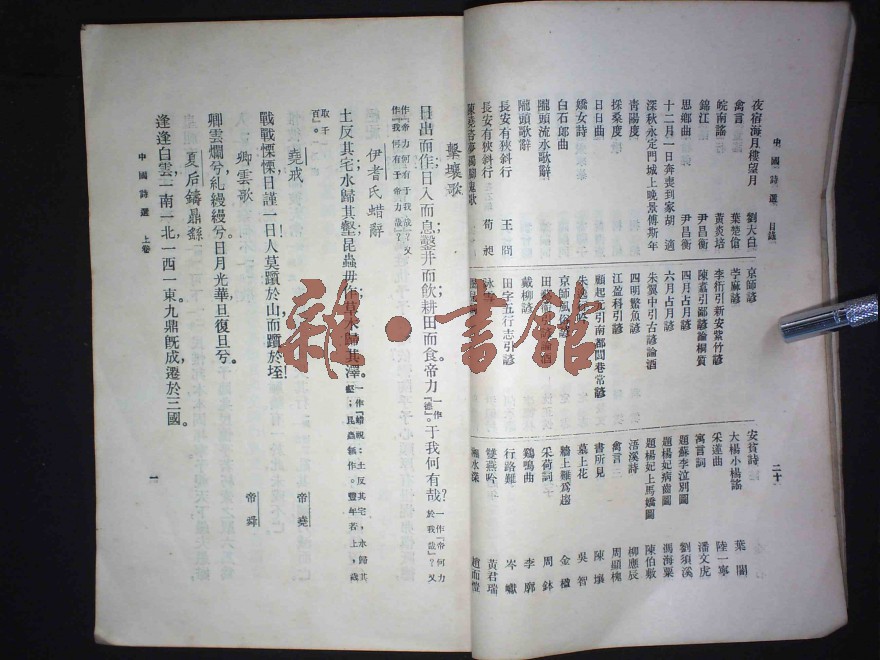 中國詩選 目錄
二十
夜宿海月樓望月 劉大白
寓言
皖南謠 葉楚傖
錦江 黃炎培
思鄉曲 尹昌衡
十二月一日奔喪到家 胡適
深秋永定門城上晚景 傅斯年
靑陽度
採桑度
日日曲
嬌女詩
白石郎曲
隴頭流水歌辭
隴頭歌辭
長安有狹斜行 王冏
長安有狹斜行 荀昶
京師諺
苧麻諺
李衎引新安紫竹諺
陳翥引鄙諺論桐質
四月占月諺
六月占月諺
朱翼中引古諺論酒
四明繁魚諺
江盈科引諺
顧起元引南都閭巷常諺
京師風俗諺
田字五行志引諺
戴柳諺
安貧詩 葉闇
大楊小楊謠 陸一寧
采蓮曲 潘文虎
寓言詞 劉須溪
題蘇李泣別圖 馮海粟
題楊妃病齒圖 陳伯敷
題楊妃上馬嬌圖 柳應辰
浯溪詩 周顯槐
寓言三 陳壤
書所見 吳智
墓上花 金楹
牆上難爲趨 周鉢
采荷詞 李廓
鷄鳴曲 岑巘
行路難 黃君瑞
鬟燕吟 趙而愷
擊壤歌
日出而作；日入而息；鑿井而飮；耕田而食。帝力一作『德』。于我何有哉？一作『帝何力於我哉』？又
作『帝力何有于我哉』？又作『我何有于帝力哉』？
伊耆氏蜡辭
土反其宅；水歸其壑；昆蟲毋作；草木歸其澤。一作『蜡祝：土反其宅，水歸其壑；昆蟲毋作。豐年若上，歲
取千百』。
堯戒 帝堯
戰戰慄慄，日謹一日。人莫躓於山，而躓於垤！
卿雲歌 帝舜
卿雲爛兮，糺縵縵兮。日月光華，旦復旦兮。
夏后鑄鼎繇
逢逢白雲，一南一北，一西一東。九鼎旣成，遷於三國。
中國詩選 上卷
一
雜·書館